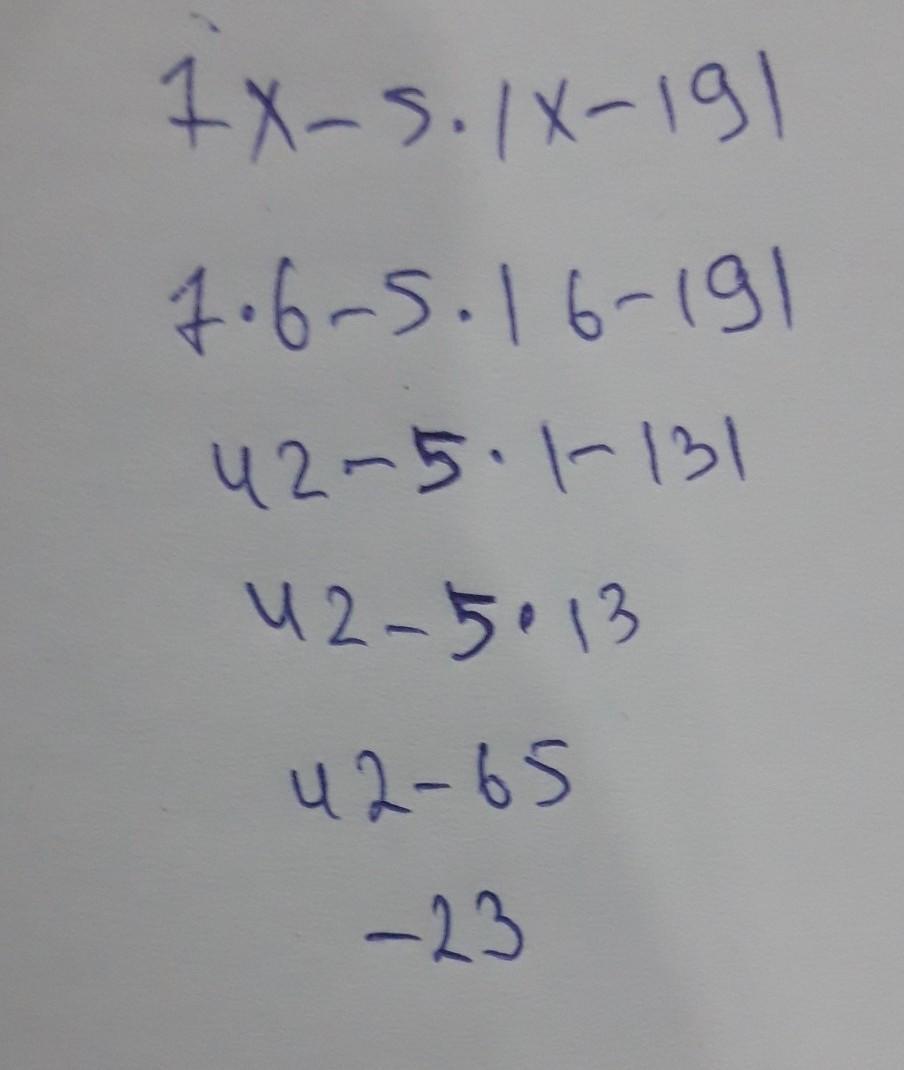 7x-5·|x-19|
7·6-5·|6-19|
42-5·|-13|
42-5·13
42-65
-23